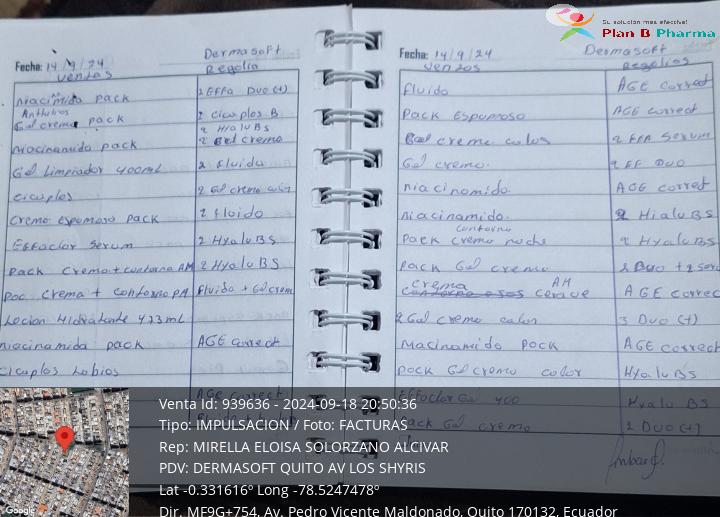 Su solución más efectiva!
Plan B Pharma
Fecha: 14/9/24 Dermasoft
Ventas Regalia
niacimida pack 1 EFFA DUO (+)
Anthelios
Gel crema pack 2 cicaplos B
2 Hialu BS
niacinamida pack 2 Gel crema
Gel Limpiador 400ml 2 fluido
cicaplos 2 Gel crema color
Crema espumosa pack 2 floido
Effaclor serum 2 Hyalu BS
Pack Crema + contorno AM 2 Hyalu BS
Crema + contorno fluido + Gel crem
Locion Hidratante 473ml
niacinamida pack AGE correct
cicaplos Labios
AGE correct
Fecha: 14/9/24 Dermasoft
Ventas Regalias
fluido AGE correct
Pack Espumoso AGE correct
Gel creme color 2 EFA Serum
Gel creme. 2 EF DUO
niacinamida AGE correct
niacinamida. 2 Hialu BS
contorno
Pack creme noche 2 Hyalu BS
Pack Gel creme 2 Duo + 2 seru
crema AM
AGE correc
2 Gel creme color 3 Duo (+)
Niacinamida Pock AGE correct
pock Gel creme color Hyalu BS
Effaclar Ga 400 Hyalu BS
Pack Gel creme 2 DUO (+)
Venta Id: 939636 - 2024-09-18 20:50:36
Tipo: IMPULSACION / Foto: FACTURAS
Rep: MIRELLA ELOISA SOLORZANO ALCIVAR
PDV: DERMASOFT QUITO AV LOS SHYRIS
Lat -0.331616º Long -78.5247478º
Dir. MF9G+754, Av. Pedro Vicente Maldonado, Quito 170132, Ecuador
Google